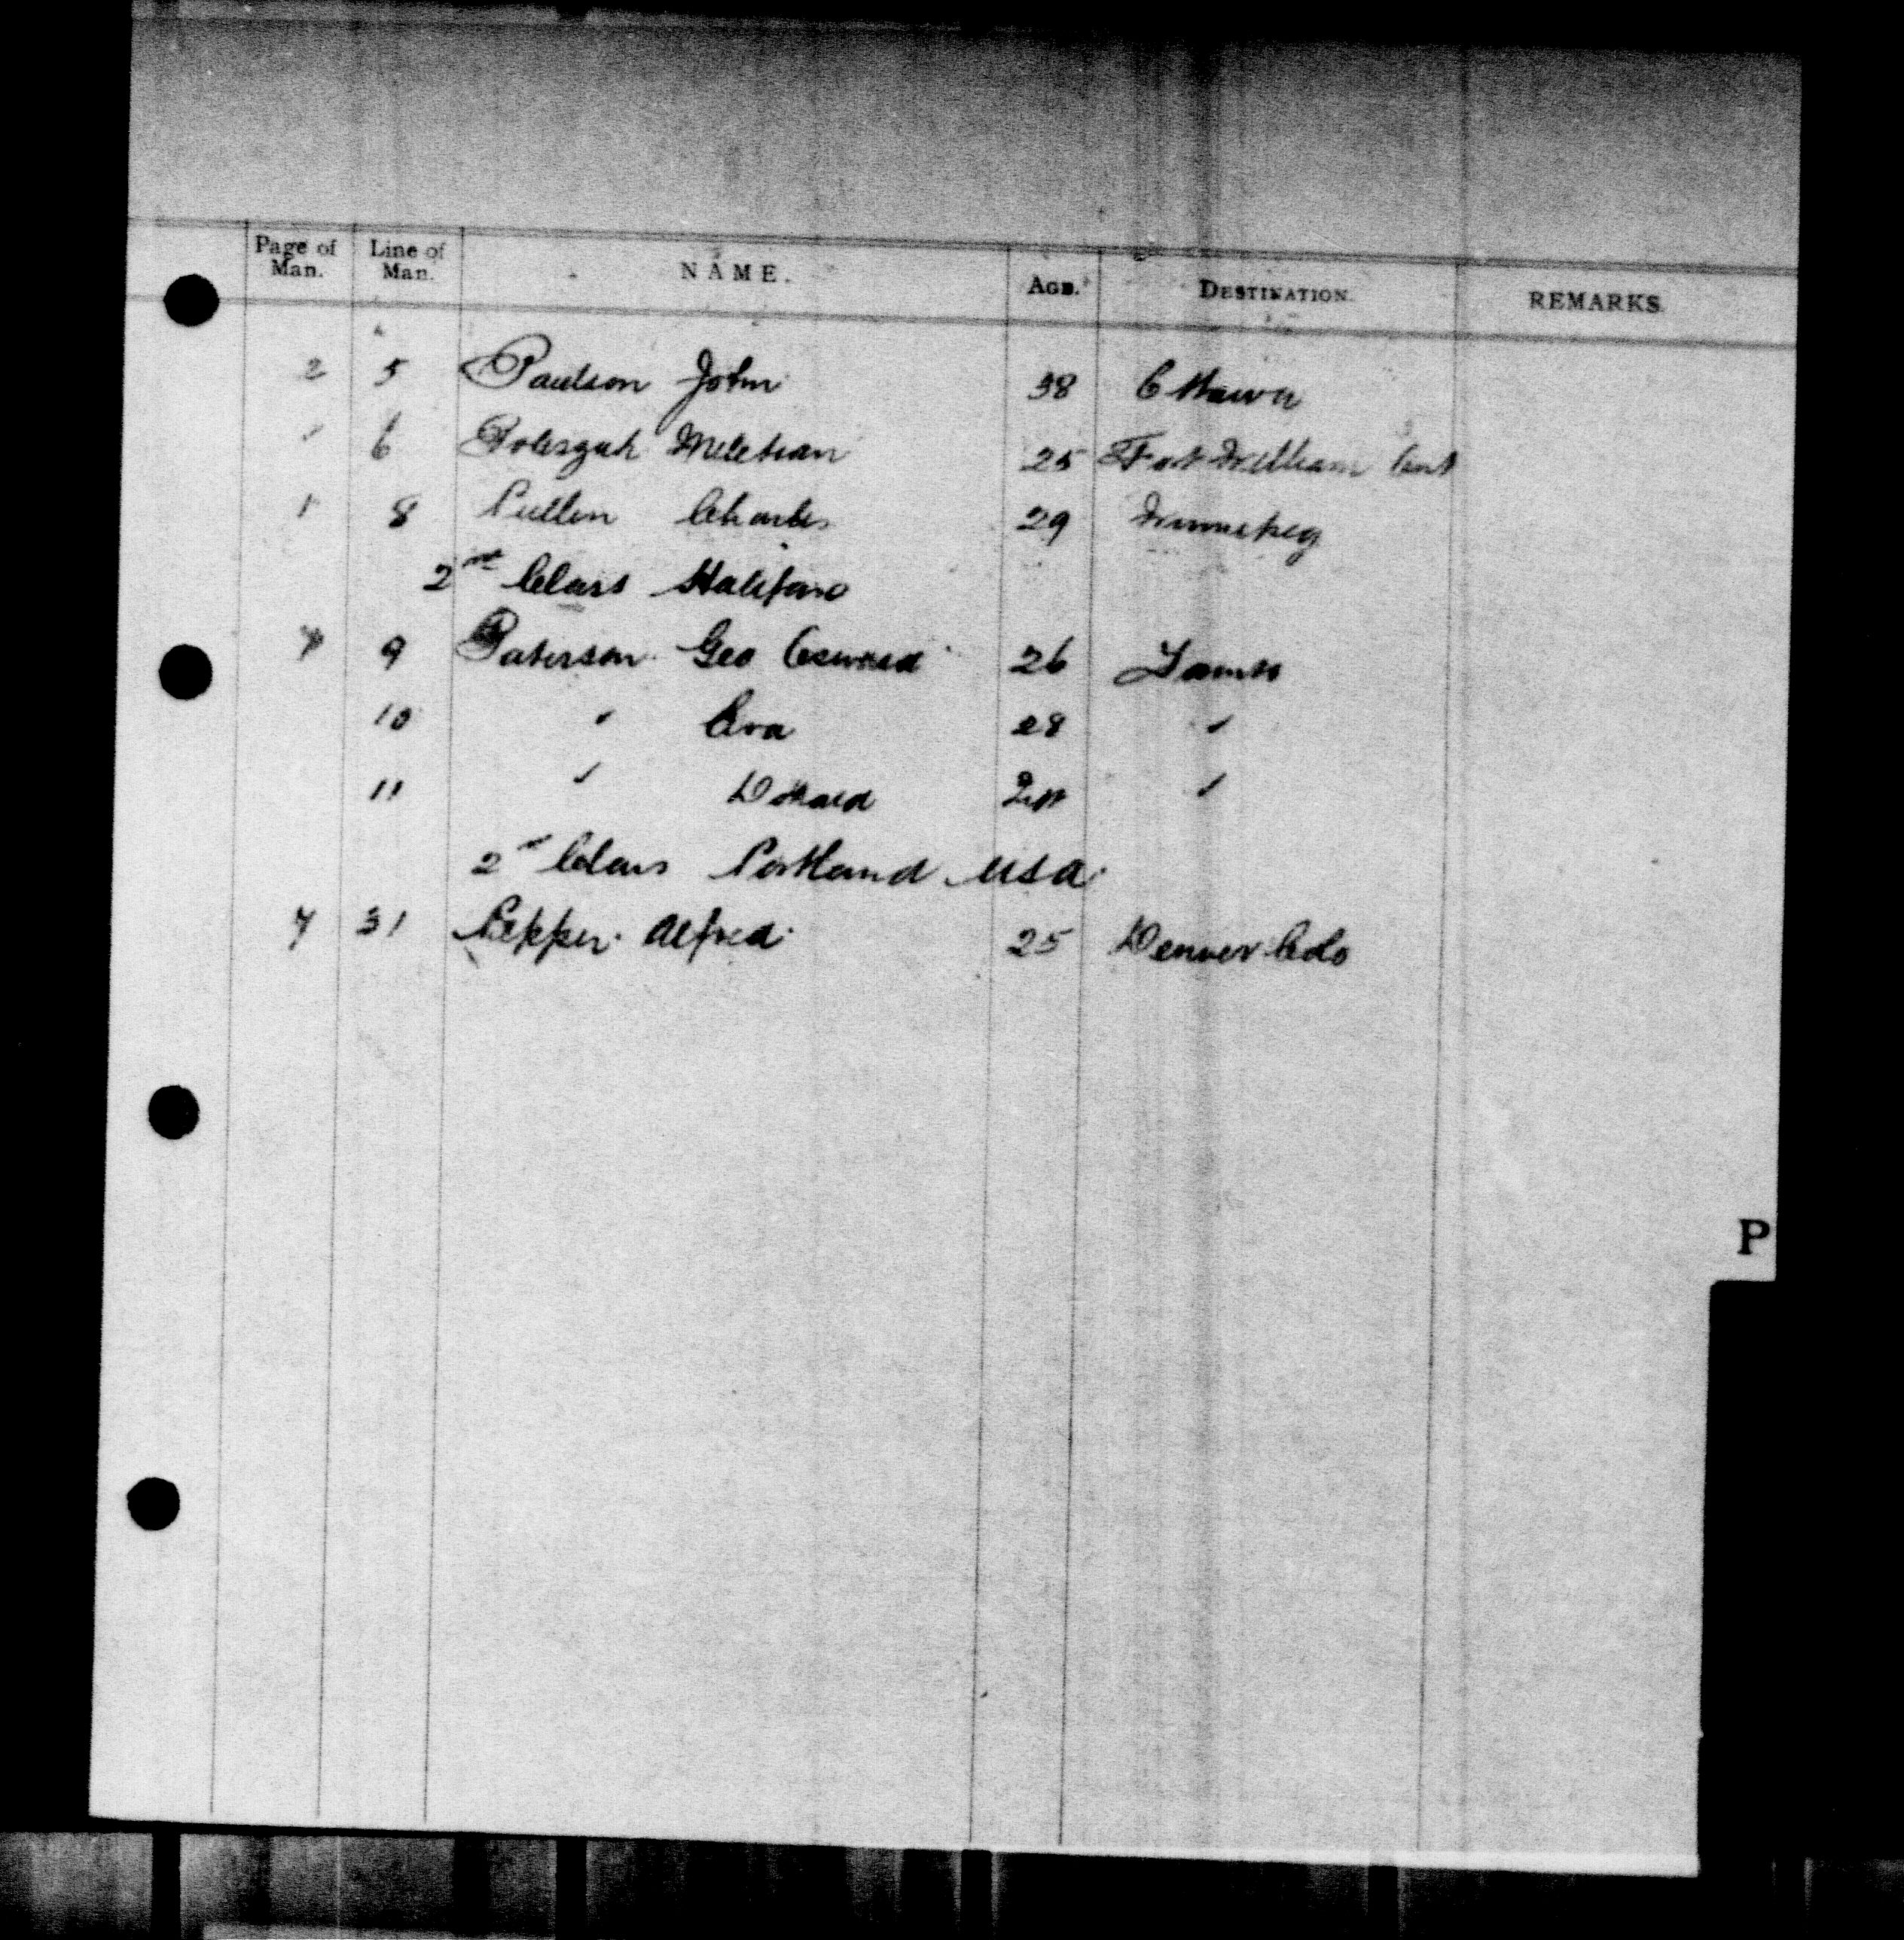 Page of Man. Line of Man. NAME. AGE. DESTINATION. REMARKS.
2 5 Paulson John 38 Ottawa
" 6 25 Fort William Ont
" 8 Pullen Charles 29 Winnipeg
2nd Class Halifax
9 Paterson Geo 26
10 " Eva 28 "
11 " Donald "
2nd Class Portland USA
7 31 Pepper Alfred 25 Denver Colo
P